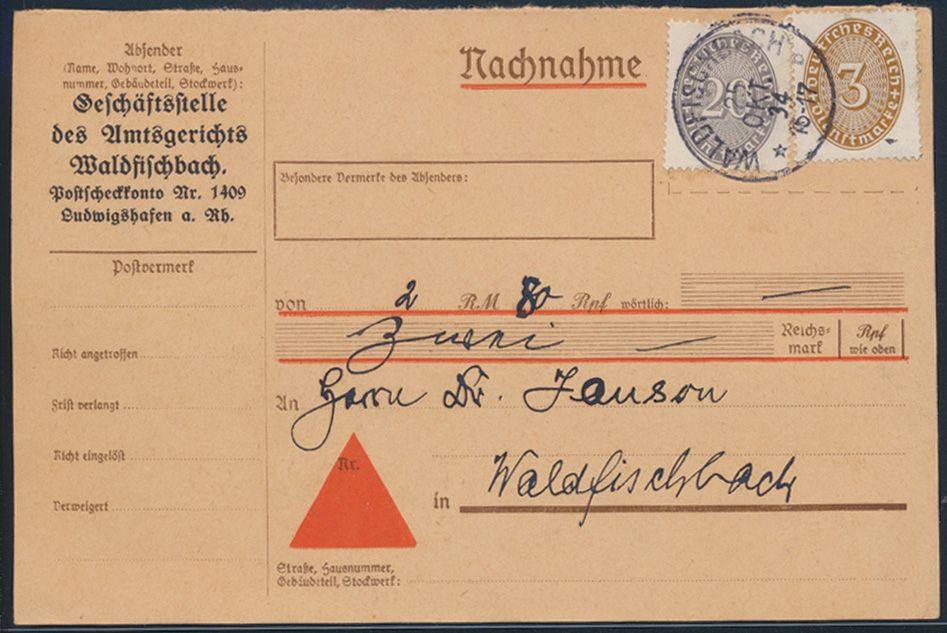 Absender
(Name, Wohnort, Straße, Haus-
nummer, Gebäudeteil, Stockwerk):
Geschäftsstelle
des Amtsgerichts
Waldfischbach.
Postscheckkonto Nr. 1409
Ludwigshafen a. Rh.
Postvermerk
Nicht angetroffen
Frist verlangt
Nicht eingelöst
Verweigert
Nachnahme
Deutsches Reich
20
Dienstmarke
Deutsches Reich
3
Dienstmarke
WALDFISCHBACH
25
OKT.
34
16-17
Besondere Vermerke des Absenders:
von 2 RM 80 Rpf wörtlich: —
Zwei — Reichs- Rpf
mark wie oben
An Herrn Dr. Janson
Nr.
in Waldfischbach
Straße, Hausnummer,
Gebäudeteil, Stockwerk: